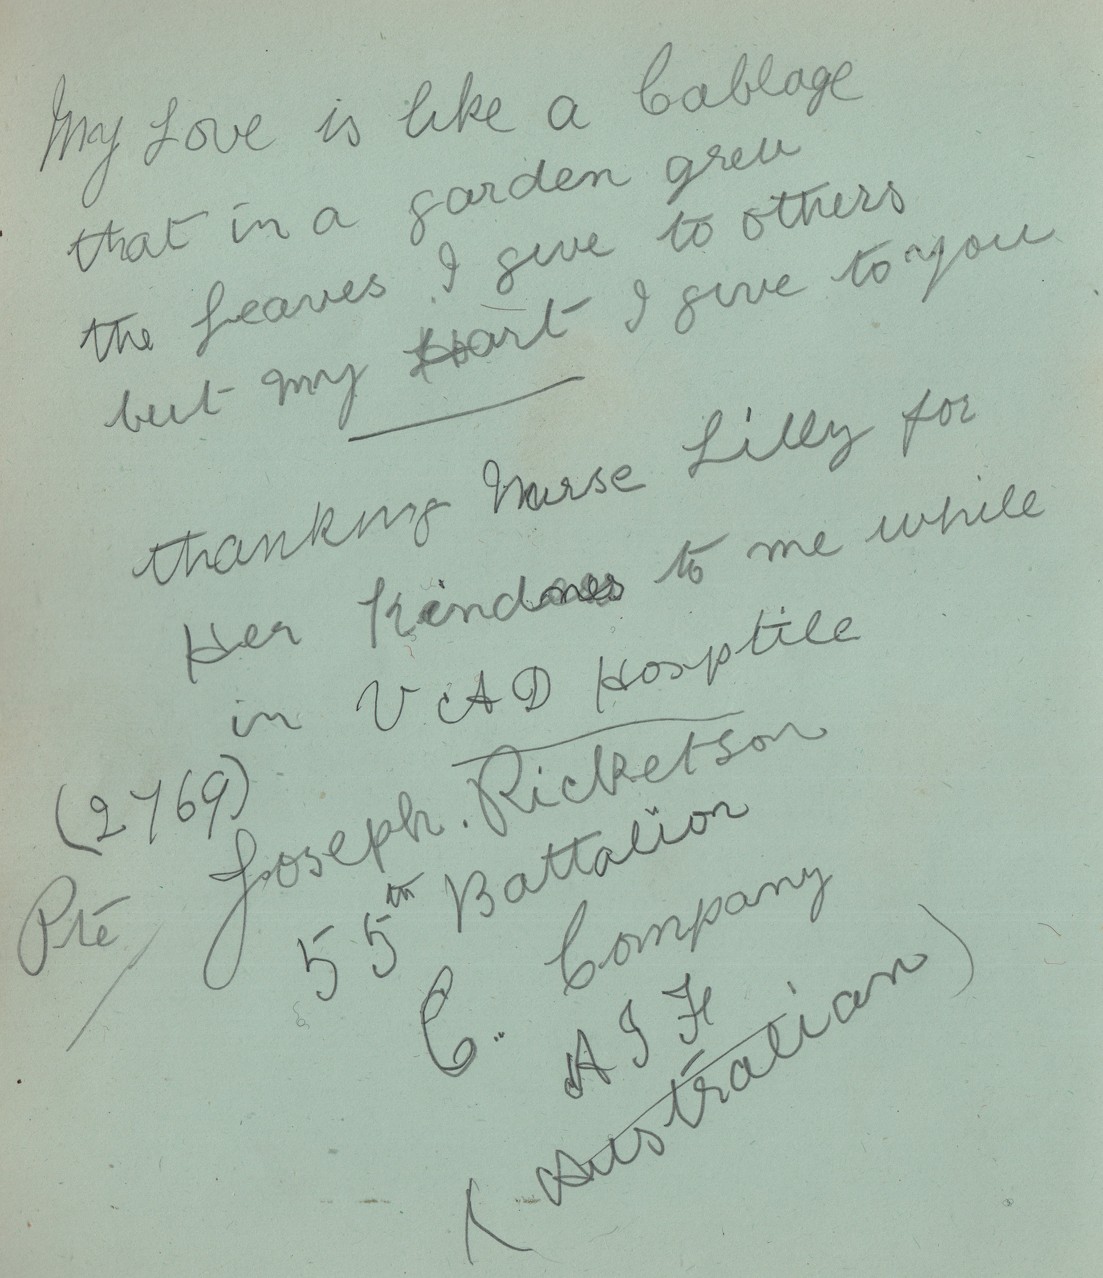 My Love is like a Cablage
that in a garden grew
the Leaves I give to others
but my Hart I give to you
thanking Nurse Lilly for
Her Kindnes to me while
in VAD Hosptile
(2769)
Pte/ Joseph. Ricketson
55th Battalion
C. Company
AIF
(Australian)